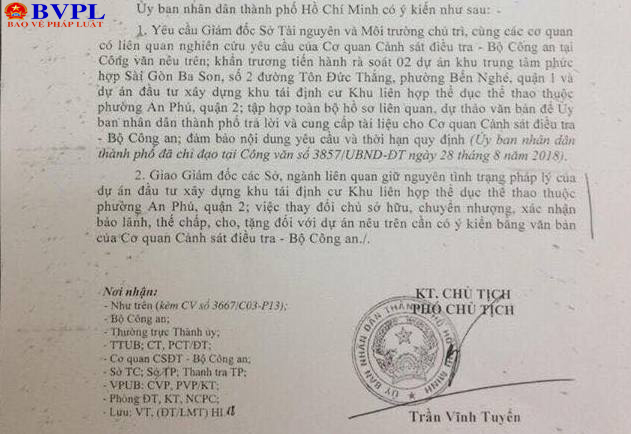 BVPL
BẢO VỆ PHÁP LUẬT
Ủy ban nhân dân thành phố Hồ Chí Minh có ý kiến như sau: -
1. Yêu cầu Giám đốc Sở Tài nguyên và Môi trường chủ trì, cùng các cơ quan
có liên quan nghiên cứu yêu cầu của Cơ quan Cảnh sát điều tra - Bộ Công an tại
Công văn nêu trên; khẩn trương tiến hành rà soát 02 dự án khu trung tâm phức
hợp Sài Gòn Ba Son, số 2 đường Tôn Đức Thắng, phường Bến Nghé, quận 1 và
dự án đầu tư xây dựng khu tái định cư Khu liên hợp thể dục thể thao thuộc
phường An Phú, quận 2; tập hợp toàn bộ hồ sơ liên quan, dự thảo văn bản để Ủy
ban nhân dân thành phố trả lời và cung cấp tài liệu cho Cơ quan Cảnh sát điều tra
- Bộ Công an; đảm bảo nội dung yêu cầu và thời hạn quy định (Ủy ban nhân dân
thành phố đã chỉ đạo tại Công văn số 3857/UBND-ĐT ngày 28 tháng 8 năm 2018).
2. Giao Giám đốc các Sở, ngành liên quan giữ nguyên tình trạng pháp lý của
dự án đầu tư xây dựng khu tái định cư Khu liên hợp thể dục thể thao thuộc
phường An Phú, quận 2; việc thay đổi chủ sở hữu, chuyển nhượng, xác nhận
bảo lãnh, thế chấp, cho, tặng đối với dự án nêu trên cần có ý kiến bằng văn bản
của Cơ quan Cảnh sát điều tra - Bộ Công an./.
Nơi nhận:
- Như trên (kèm CV số 3667/C03-P13);
- Bộ Công an;
- Thường trực Thành ủy;
- TTUB; CT, PCT/ĐT;
- Cơ quan CSĐT - Bộ Công an;
- Sở TC; Sở TP; Thanh tra TP;
- VPUB: CVP, PVP/KT;
- Phòng ĐT, KT, NCPC;
- Lưu: VT, (ĐT/LMT) H
KT. CHỦ TỊCH
PHÓ CHỦ TỊCH
ỦY BAN NHÂN DÂN THÀNH PHỐ HỒ CHÍ MINH
Trần Vĩnh Tuyến